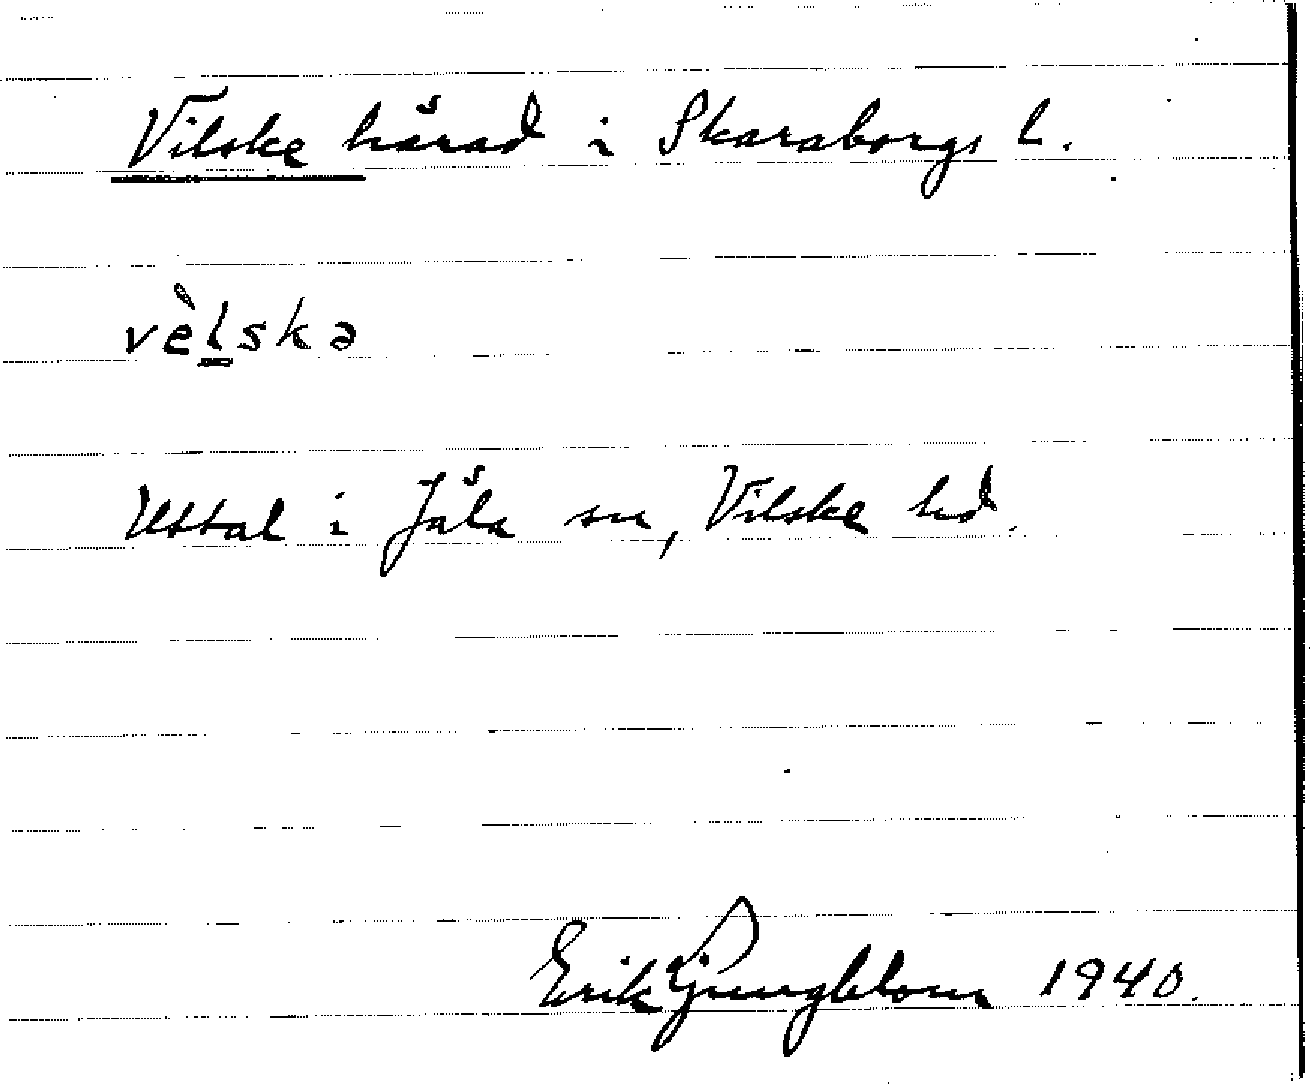 Vilske härad i Skaraborgs l.
vèlskə
Uttal i Jäla sn, Vilske hd.
Erik Ljungblom 1940.